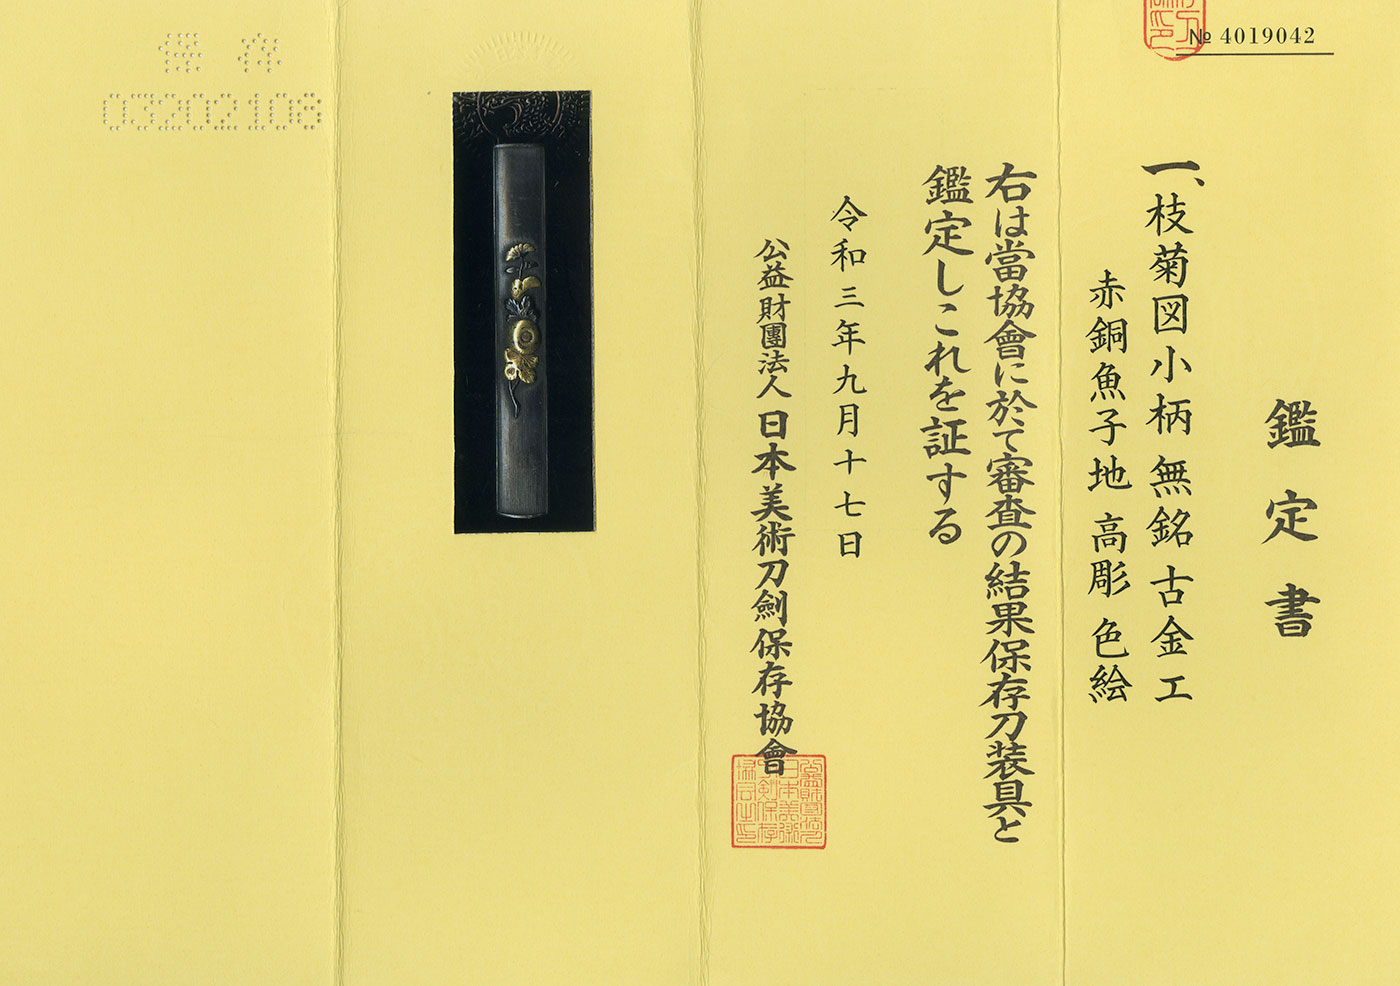 № 4019042
鑑定書
一、枝菊図小柄 無銘 古金工
赤銅魚子地 高彫 色絵
右は當協會に於て審査の結果保存刀装具と
鑑定しこれを証する
令和三年九月十七日
公益財團法人 日本美術刀劍保存協會
保存
03202108